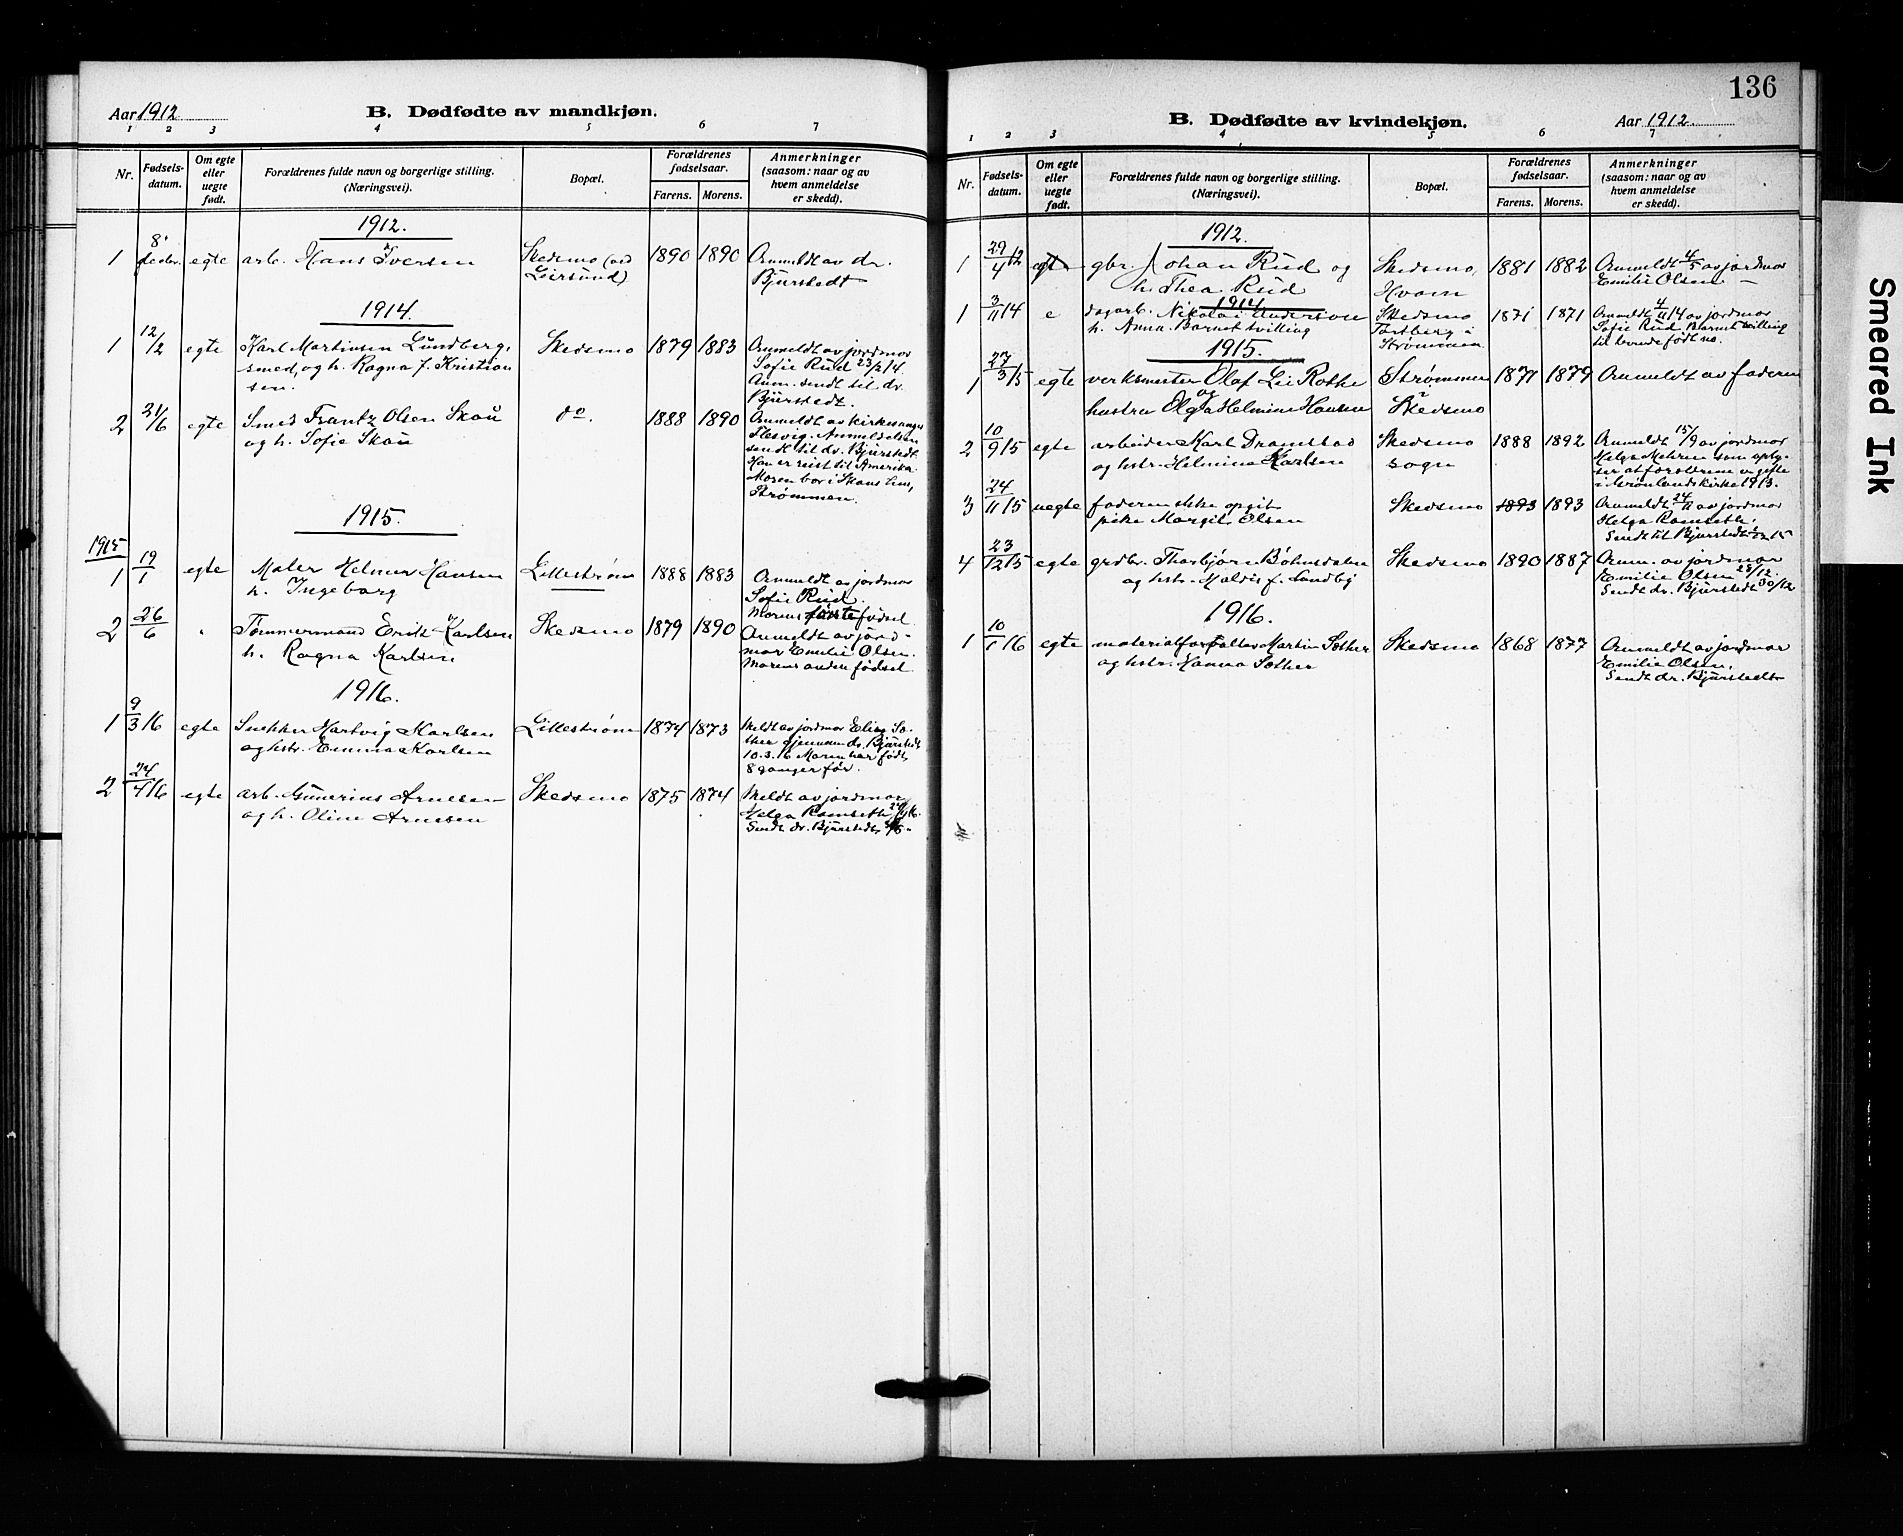 Aar 1912
B. Dødfødte av mandkjøn.
1 2 3 4 5 6 7
Nr.
Fødsels-
datum.
Om egte
eller
uegte
født.
Forældrenes fulde navn og borgerlige stilling.
(Næringsvei).
Bopæl.
Forældrenes
fødselsaar.
Farens. Morens.
Anmerkninger
(saasom: naar og av
hvem anmeldelse
er skedd).
1912.
1 8' decbr. egte arb. Hans Iversen
Skedsmo (ved
Leirsund)
1890 1890
Anmeldt av dr.
Bjürstedt
1914.
1 12/2 egte Karl Martinsen Lundberg,
smed, og h. Ragna f. Kristian
sen.
Skedsmo 1879 1883
Anmeldt av jordmor
Sofie Rud 23/2 14.
Anm. sendt til dr.
Bjürstedt.
2 21/6 egte Smed Frantz Olsen Skau
og h. Sofie Skau
do. 1888 1890
Anmeldt av kirkesanger
Slesvig. Anmeldelsen
sendt til dr. Bjürstedt.
Han er reist til Amerika.
Moren bor i Skaus hus,
Strømmen.
1915.
1915
1 19/1 egte Maler Helmer Hansen
h. Ingeborg
Lillestrøm 1888 1883
Anmeldt av jordmor
Sofie Rud.
Morens første fødsel
2 26/6 " Tømmermand Erik Karlsen
h. Ragna Karlsen
Skedsmo 1879 1890
Anmeldt av jord-
mor Emilie Olsen.
Morens anden fødsel
1916.
1 9/3 16 egte Snekker Hartvig Karlsen
og hstr. Emma Karlsen
Lillestrøm 1874 1873
Meldt av jordmor Elise Sæ-
ther gjennem dr. Bjürstedt
10.3.16 Moren har født
8 ganger før.
2 24/4 16 egte arb. Gunerius Arnesen
og h. Oline Arnesen
Skedsmo 1875 1874
Meldt av jordmor
Helga Ramseth
Sendt dr. Bjürstedt
136
B. Dødfødte av kvindekjøn.
Aar 1912
1 2 3 4 5 6 7
Nr.
Fødsels-
datum.
Om egte
eller
uegte
født.
Forældrenes fulde navn og borgerlige stilling.
(Næringsvei).
Bopæl.
Forældrenes
fødselsaar.
Farens. Morens.
Anmerkninger
(saasom: naar og av
hvem anmeldelse
er skedd).
1912.
1 29/4 12 egte gbr. Johan Rud og
h. Thea Rud
Skedsmo,
Hvam
1881 1882
Anmeldt 4/5 av jordmor
Emilie Olsen —
1914
1 3/11 14 e dagarb. Nikolai Andersen
h. Anna. Barnet tvilling
Skedsmo
Torsberg i
Strømmen
1871 1871
Anmeldt 4/11 14 av jordmor
Sofie Rud. Barnet tvilling
til levende født no.
1915.
1 27/3 15 egte verksmester Olaf Lei Rothe
og
hustru Olga Helmine Hansen
Strømmen
Skedsmo
1871 1879
Anmeldt av faderen
2 10/9 15 egte arbeider Karl Dramstad
og hstr. Helmine Karlsen
Skedsmo
sogn
1888 1892
Anmeldt 15/9 av jordmor
Helga Mehren som oply-
ser at forældrene er gifte
i Grønlands kirke 1913.
3 24/11 15 uegte faderen ikke opgit
pike Margit Olsen
Skedsmo 1893 1893
Anmeldt 24/11 av jordmor
Helga Ramseth.
Sendt til Bjürstedt 15
4 23/12 15 egte grdbr. Thorbjørn Bøhmsdalen
og hstr. Maldis f. Sundby
Skedsmo 1890 1887
Anm. av jordmor
Emilie Olsen 28/12.
Sendt dr. Bjürstedt 30/12
1916.
1 10/1 16 egte materialforvalter Martin Sæther
og hstr. Hanna Sæther
Skedsmo 1868 1877
Anmeldt av jordmor
Emilie Olsen.
Sendt dr. Bjürstedt
Smeared Ink